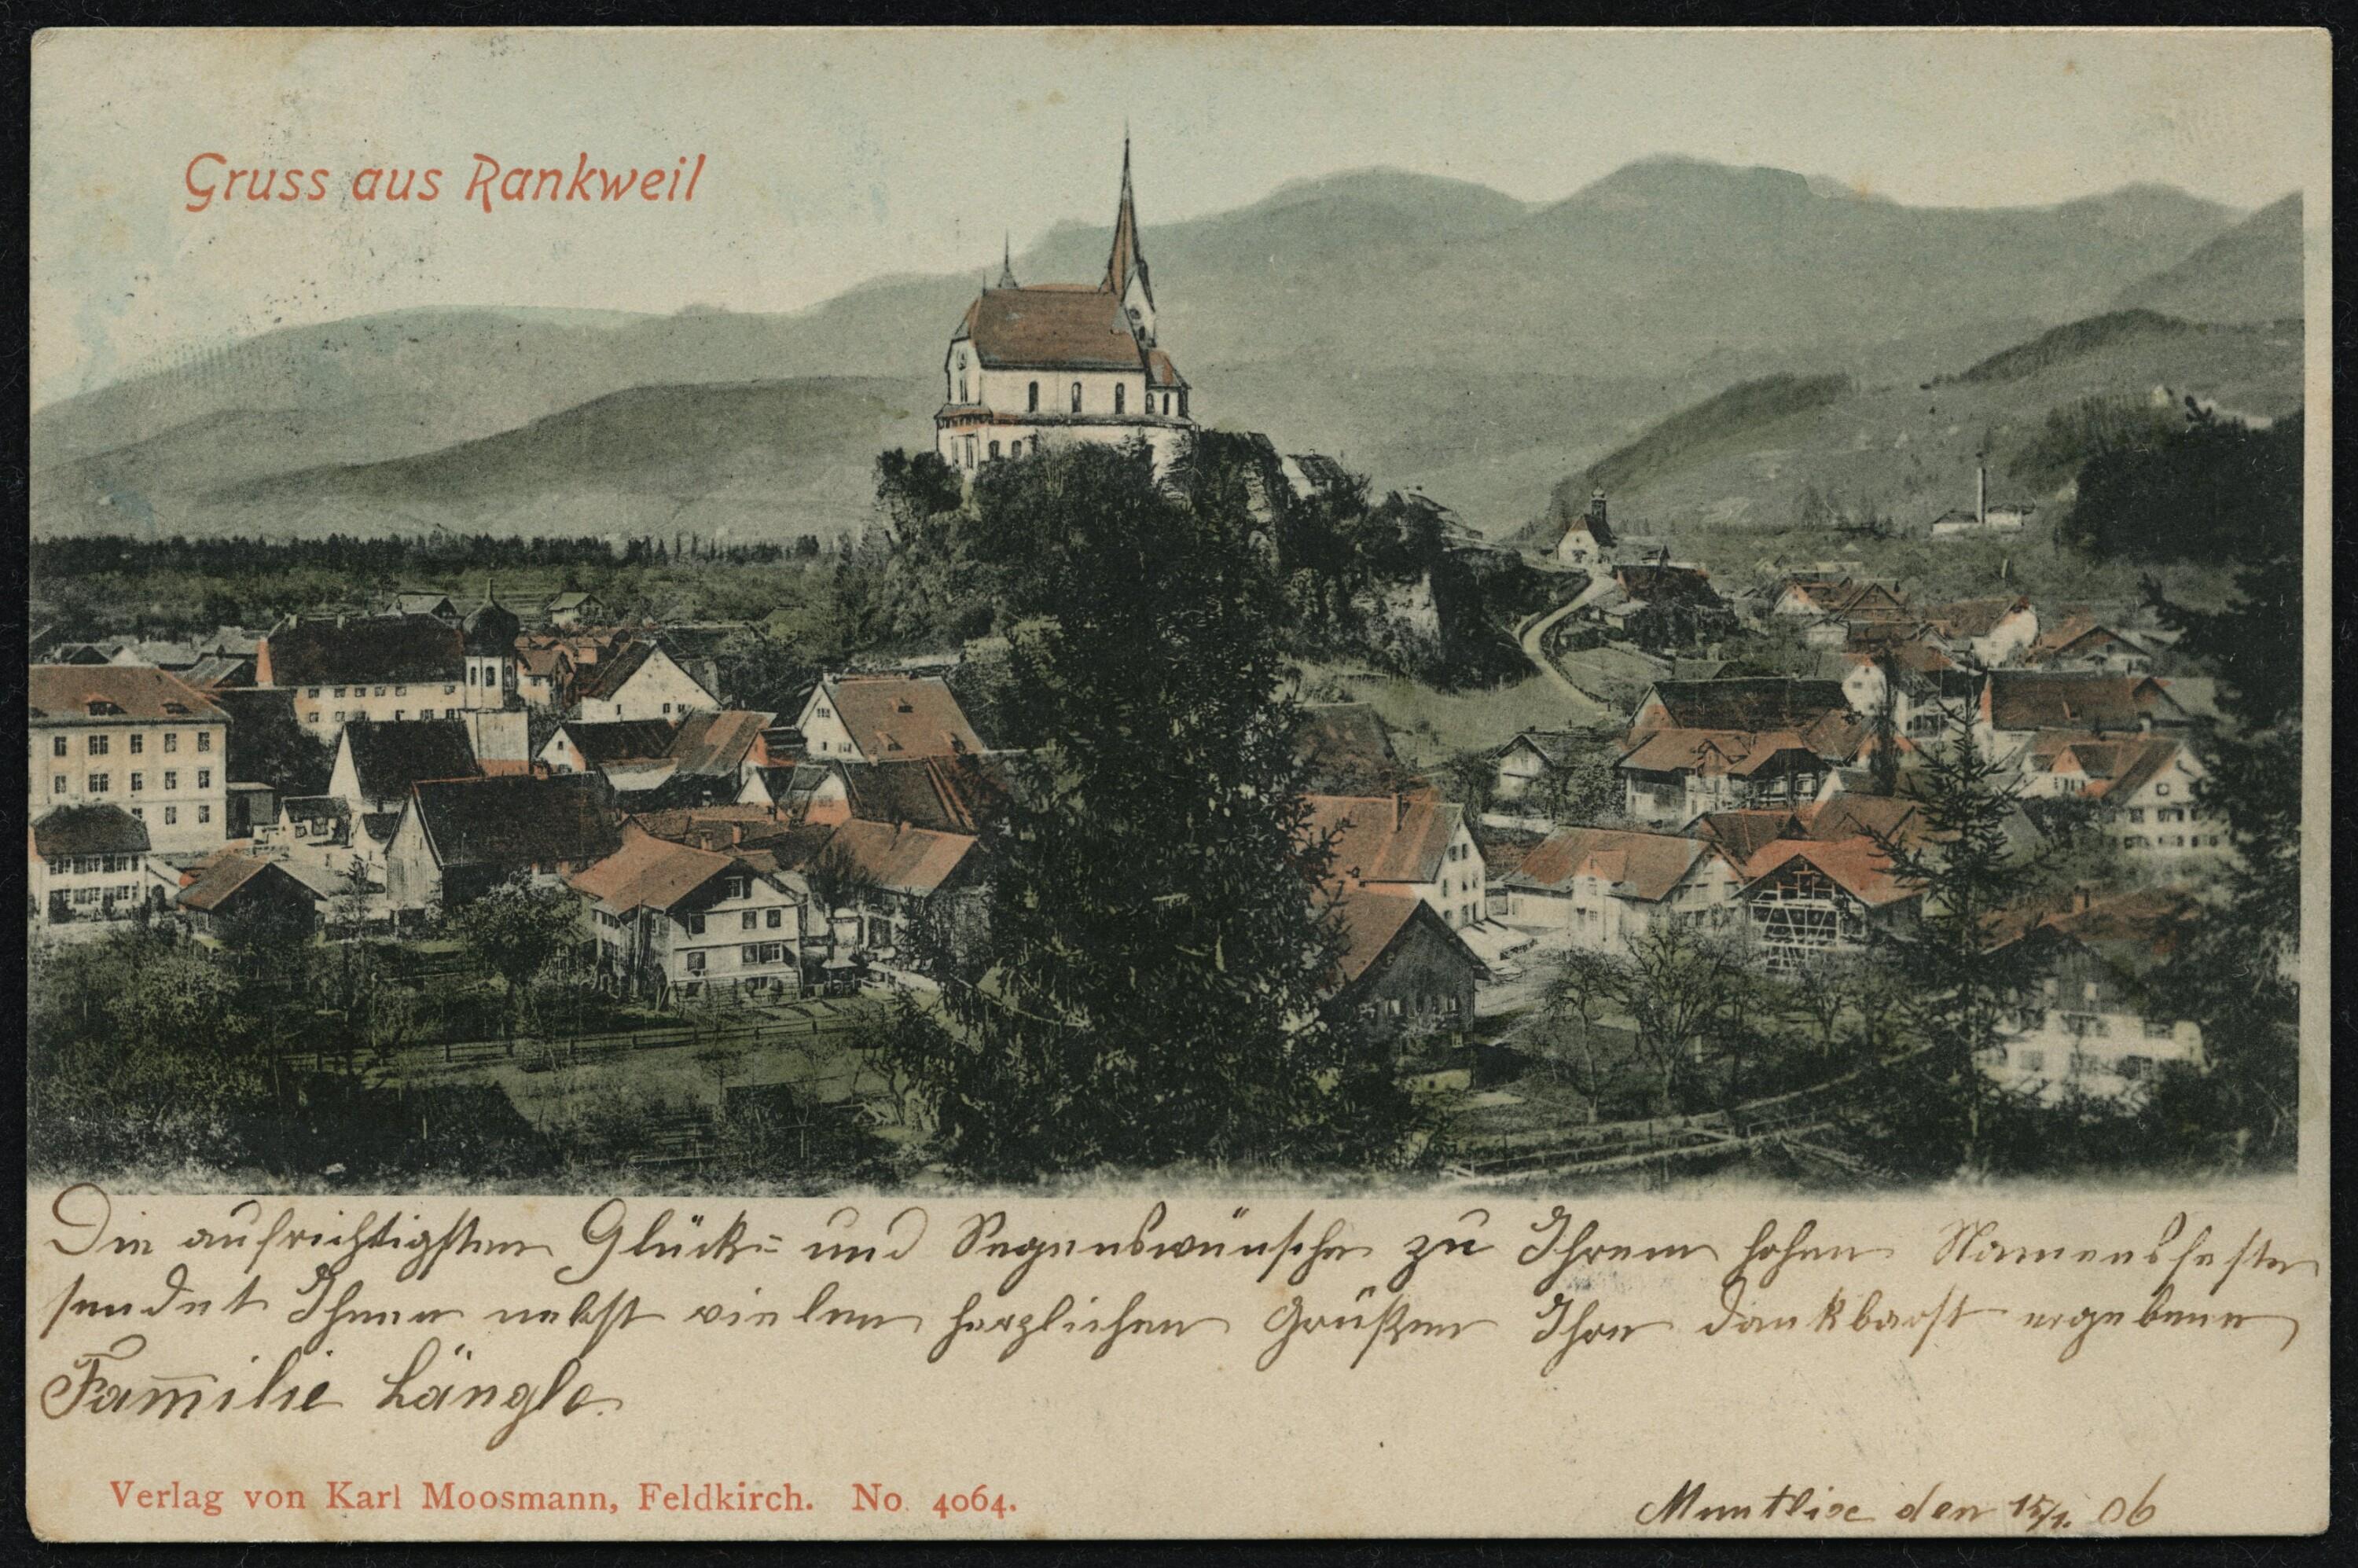 Gruss aus Rankweil
Die aufrichtigsten Glück= und Segenswünsche zu Ihrem hohen Namensfeste
sendet Ihnen nebst vielen herzlichen Grüßen Ihre dankbarst ergebene
Fam̅ilie Längle.
Verlag von Karl Moosmann, Feldkirch. No. 4064.
Muntlix den 15/1. 06